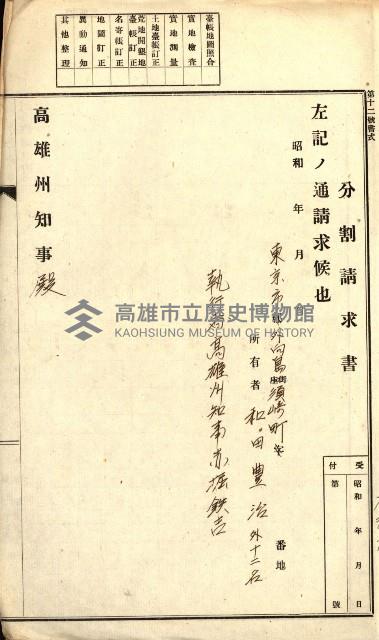 第十二號書式
分割請求書
左記ノ通請求候也
昭和 年 月
東京市外向島須崎町 番地
所有者 和田豊治 外十二名
執行者高雄州知事赤堀鉄吉
高雄州知事殿
受付
昭和 年 月 日
第 號
臺帳地圖照合
實地檢查
實地測量
土地臺帳訂正
荒地開墾地臺帳訂正
名寄帳訂正
地圖訂正
異動通知
其他整理
高雄市立歷史博物館
KAOHSIUNG MUSEUM OF HISTORY